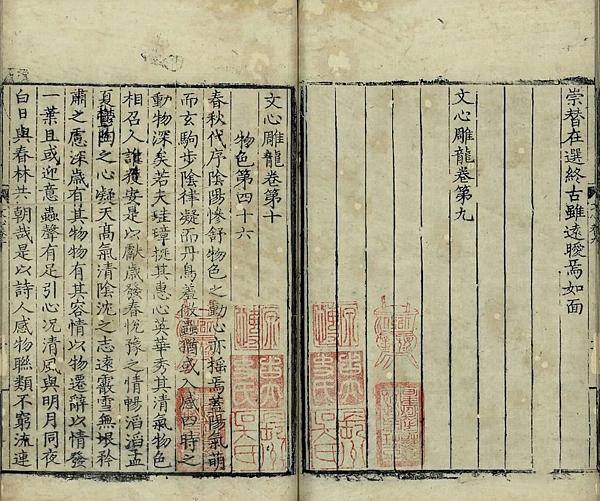 崇替在選終古雖遠曖焉如面
文心雕龍卷第九
文心雕龍卷第十
物色第四十六
春秋代序陰陽慘舒物色之動心亦搖焉蓋陽氣萌
而玄駒步陰律凝而丹鳥羞微蟲猶或入感四時之
動物深矣若夫珪璋挺其惠心英華秀其清氣物色
相召人誰獲安是以獻歲發春悅豫之情暢滔滔孟
夏鬱陶之心凝天高氣清陰沈之志遠霰雪無垠矜
肅之慮深歲有其物物有其容情以物遷辭以情發
一葉且或迎意蟲聲有足引心況清風與明月同夜
白日與春林共朝哉是以詩人感物聯類不窮流連